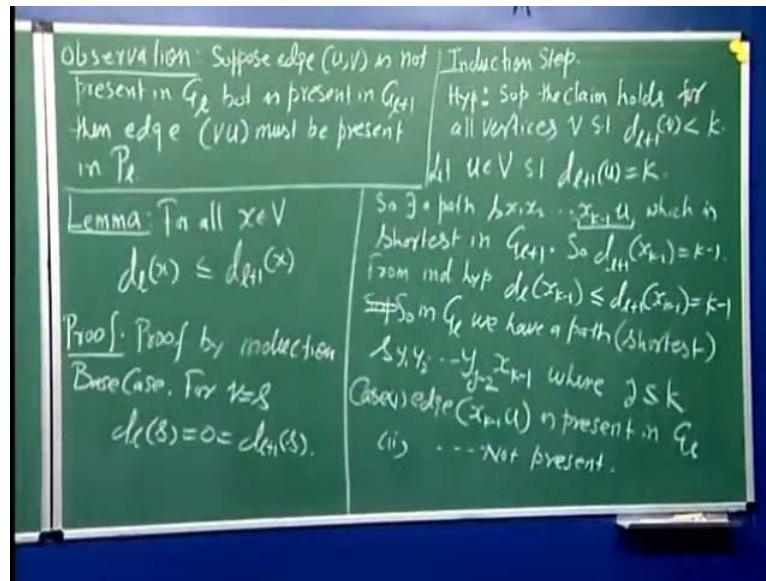 Observation: Suppose edge (u,v) is not
present in Gℓ but is present in Gℓ+1
then edge (vu) must be present
in Pℓ
Lemma: For all x∈V
dℓ(x) ≤ dℓ+1(x)
Proof: Proof by induction
Base Case. For v=s
dℓ(s)=0=dℓ+1(s).
Induction Step.
Hyp: Sup the claim holds for
all vertices V st dℓ+1(v)<k.
Let u∈V st dℓ+1(u)=k.
So ∃ a path s x₁x₂ ... xk-1 u, which is
shortest in Gℓ+1. So dℓ+1(xk-1)=k-1.
From ind hyp dℓ(xk-1) ≤ dℓ+1(xk-1)=k-1
So in Gℓ we have a path (shortest)
s y₁y₂ ... yj-2 xk-1 where j≤k
Case(i) edge (xk-1 u) is present in Gℓ
(ii) ---- Not present.